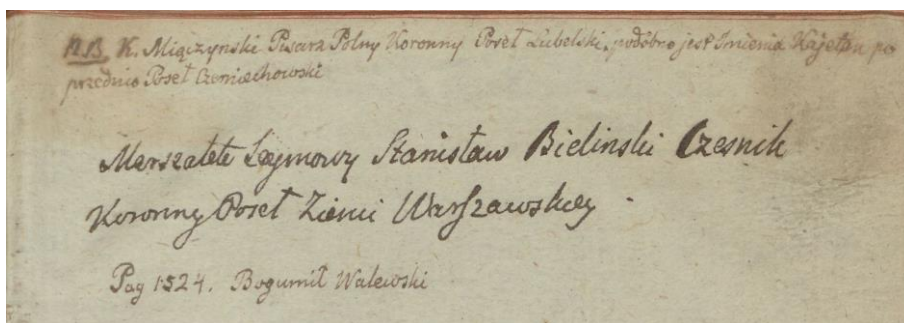 N.B. K. Miączynski Pisarz Polny Koronny Poseł Lubelski, podóbno jest Imienia Kajetan po
przednio Poseł Czerniechowski
Marszałek Seymowy Stanisław Bielinski Czesnik
Koronny Poseł Ziemi Warszawskiey.
Pag 1524. Bogumił Walewski